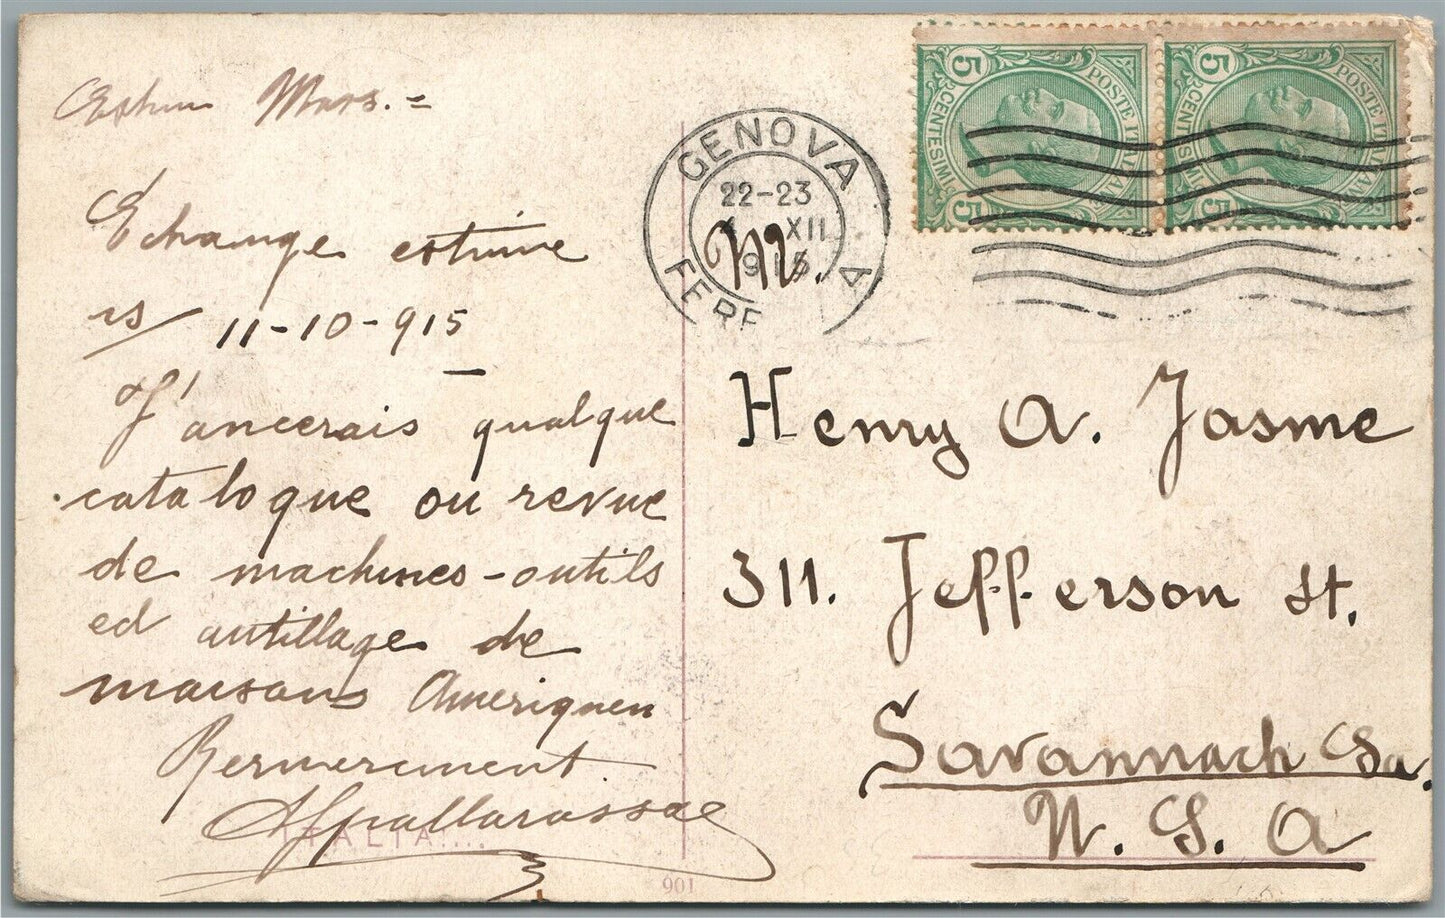 Mars. =
Echange estime
11-10-915
J'ancerais qualque
cataloque ou revue
de machines-outils
ed autillage de
maisons Ameriquen
GENOVA
22-23
XII
915
FERR
A
POSTE ITALIANE
5 CENTESIMI 5
POSTE ITALIANE
5 CENTESIMI 5
M.
Henry A. Jasme
311. Jefferson St.
Savannach Ga.
U. S. A
ITALIA
901